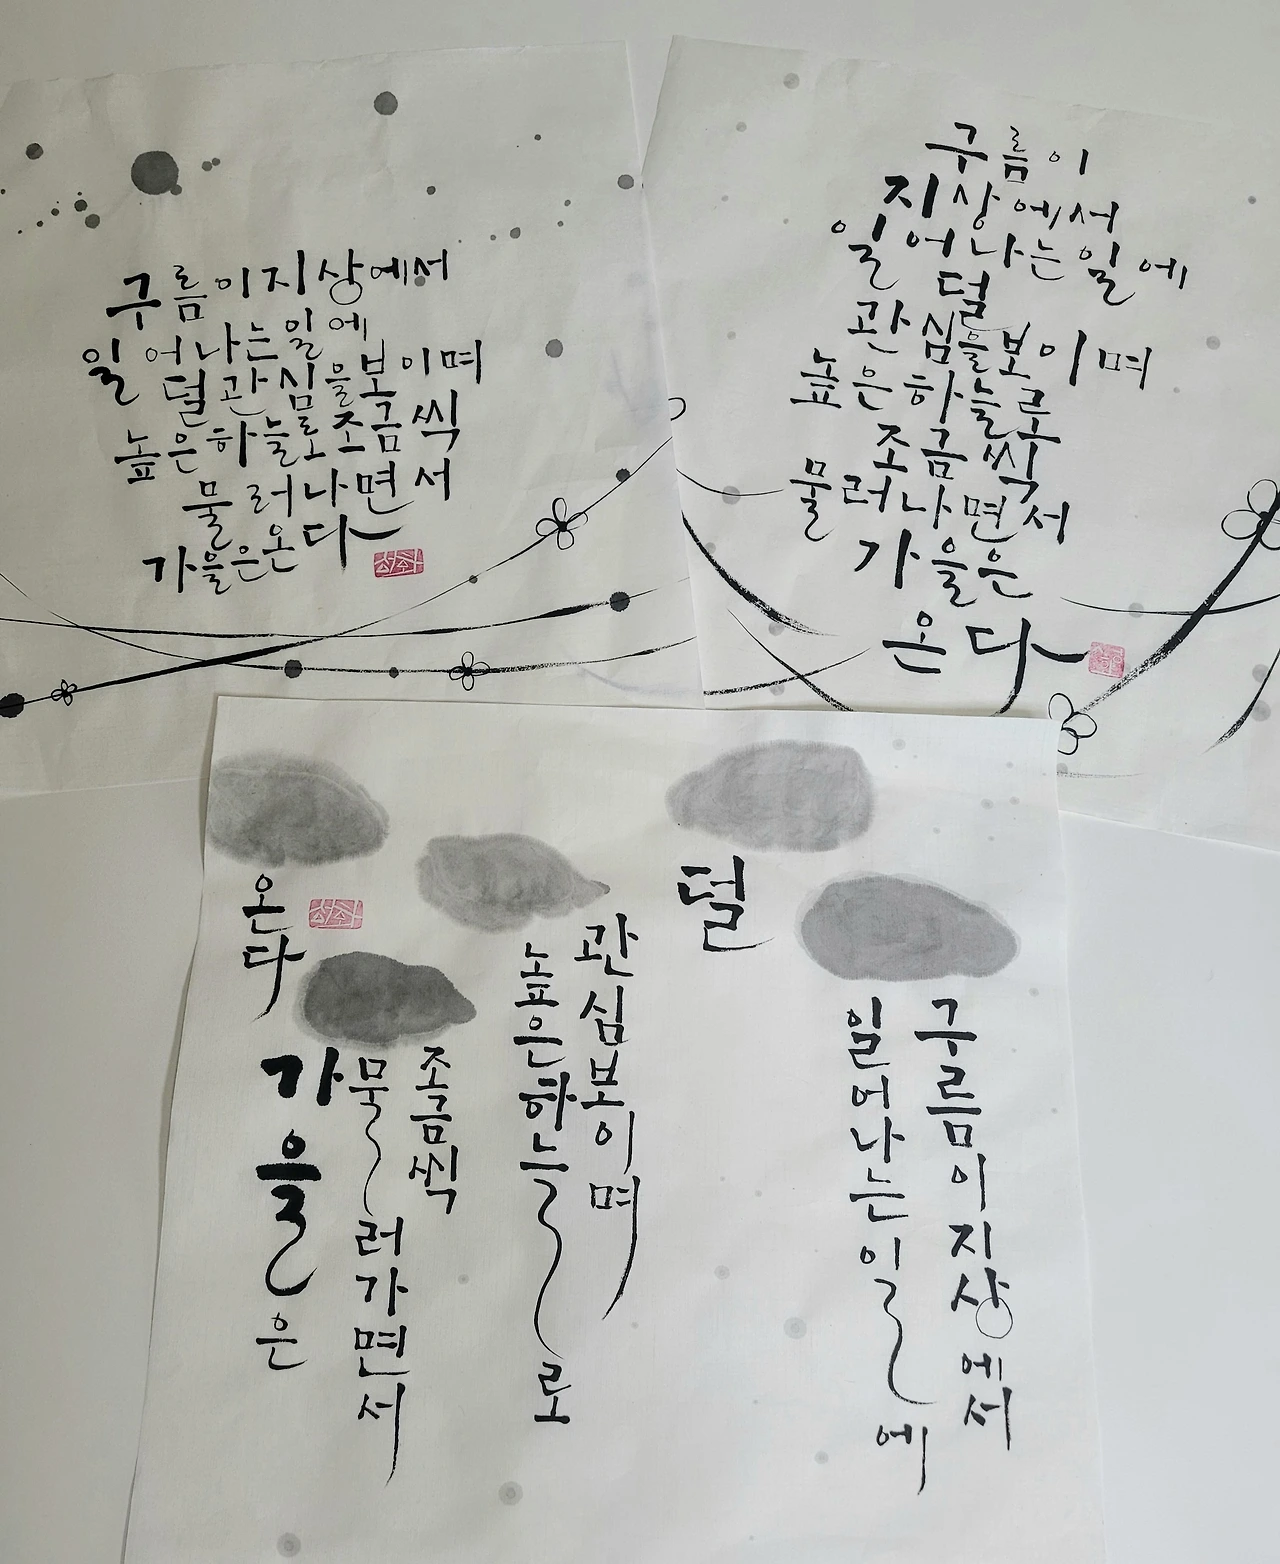 구름이지상에서
일어나는일에
덜관심을보이며
높은하늘로조금씩
물러나면서
가을은온다
구름이
지상에서
일어나는일에
덜
관심을보이며
높은하늘로
조금씩
물러나면서
가을은
온다
구름이지상에서
일어나는일에
덜
관심보이며
높은하늘로
조금씩
물러가면서
가을은
온다